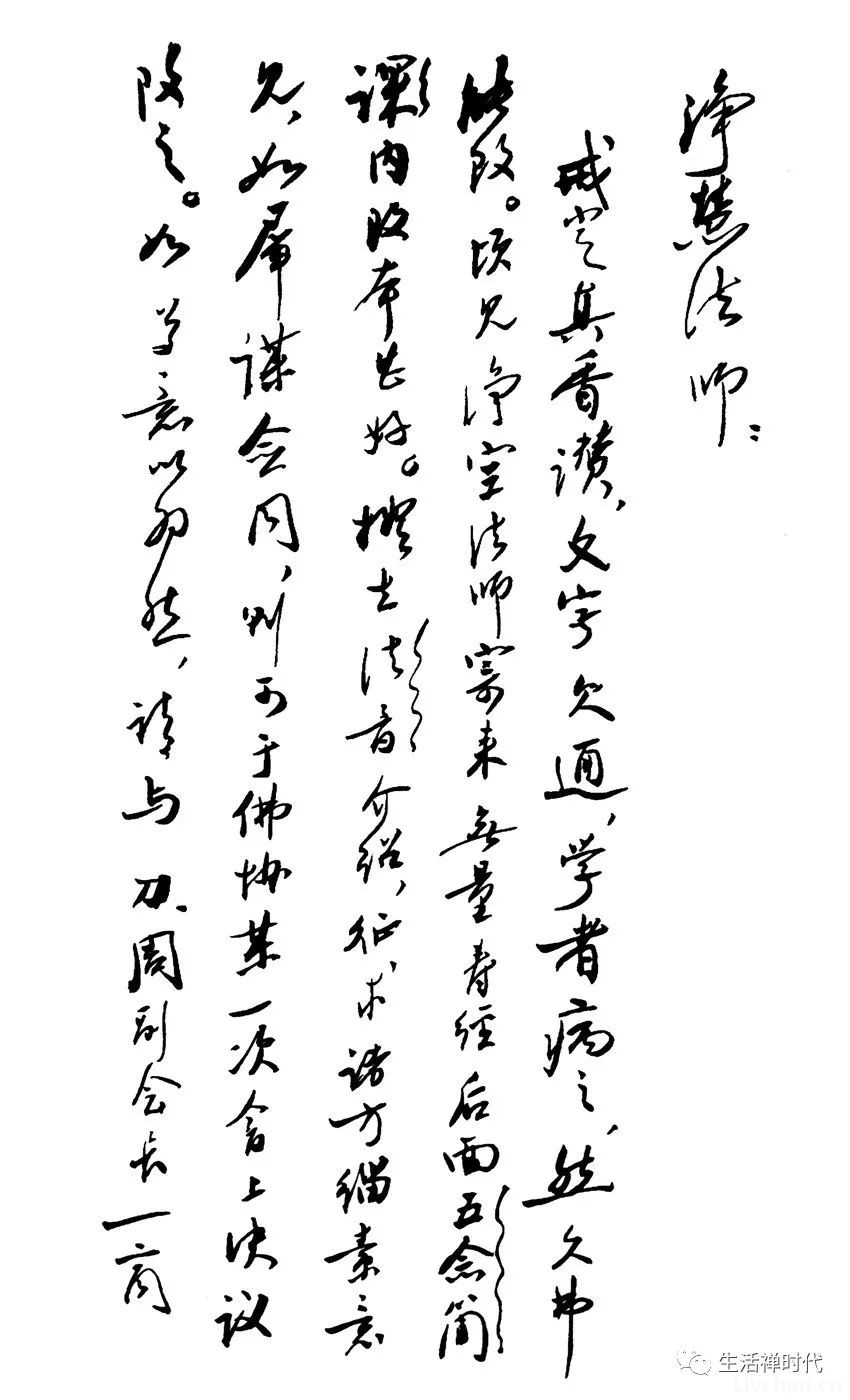 净慧法师：
戒定真香讃，文字欠通，学者病之，然久弗
能改。顷见净空法师寄来无量寿经后面五念简
课内改本甚好。拟在法音介绍，征求诸方缁素意
见，如属谋合同，则可于佛协某一次会上决议
改之。如尊意以为然，请与刀、周副会长一商
生活禅时代
Livchan.cn